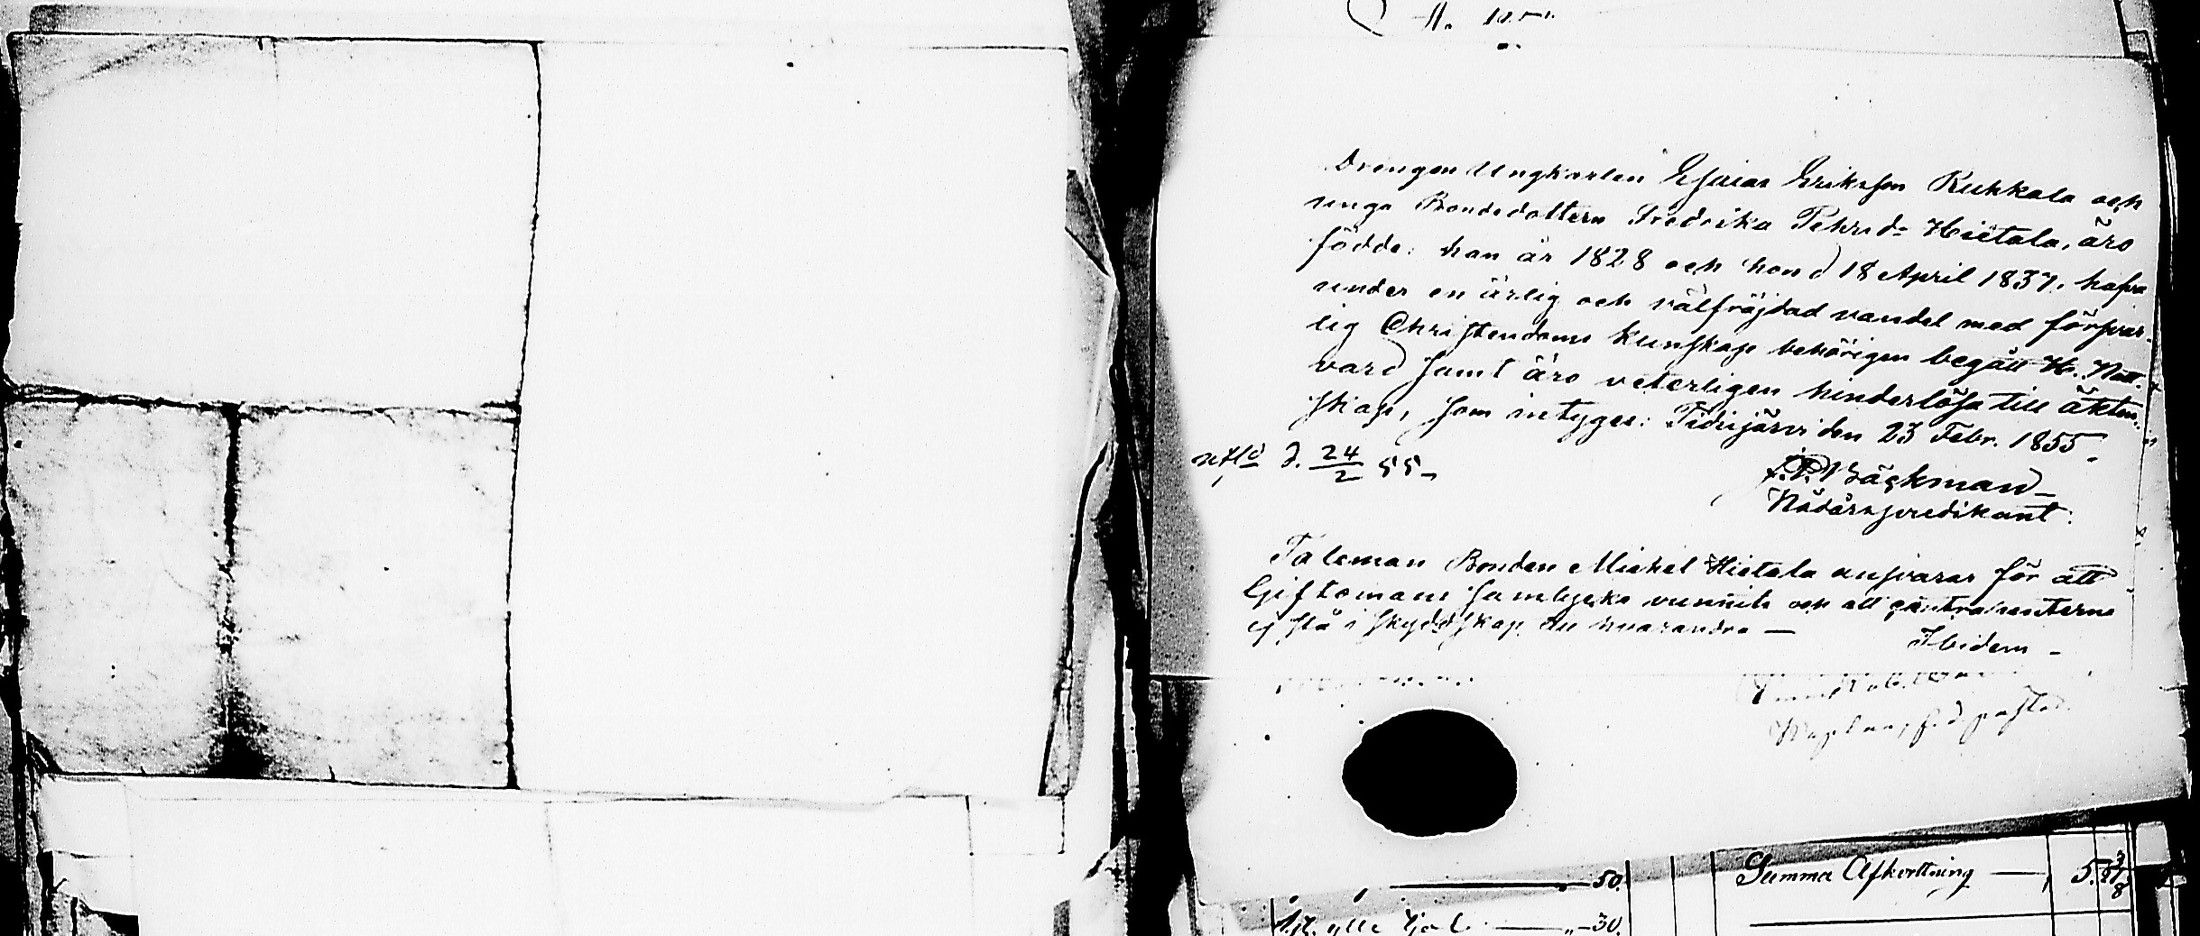 Drengen Ungkarlen Esaias Eriksson Kukkala och
unga Bondedottern Fredrika Pehrsd:r Hietala, äro
födde: han år 1828 och hon d 18 April 1837, hafva
under en ärlig och välfräjdad vandel med försvar-
lig Christendoms kunskap behörigen begått H. Natt-
vard samt äro veterligen hinderlösa till äkten-
skap, som intygas: Pidisjärvi den 23 Febr. 1855.
d. 24/2 55
Bäckman
Nådårspredikant.
Taleman Bonden Michel Hietala ansvarar för att
Giftomans samtycke vunnits och att contrahenterne
ej stå i skyldskap till hvarandra —
Ibidem
50.
30.
Summa Afkortning — 5.